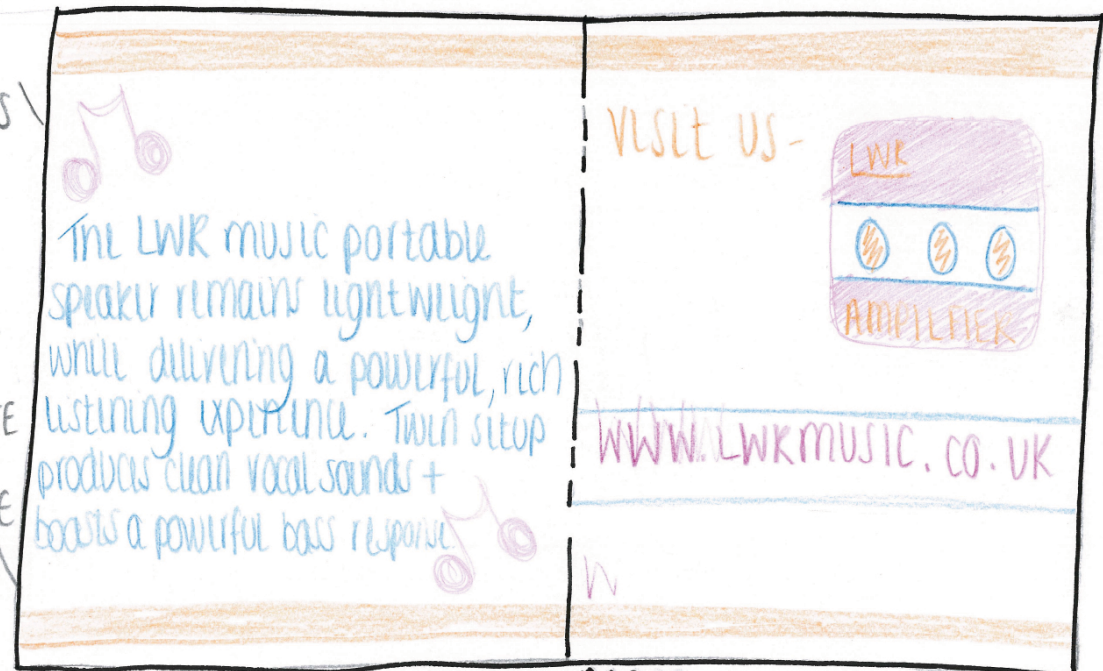 S
The LWR music portable
speaker remains lightweight,
while delivering a powerful, rich
listening experience. Twin setup
produces clean vocal sounds +
boasts a powerful bass response.
E
VISIT US -
LWR
AMPLIFIER
WWW.LWRMUSIC.CO.UK
W